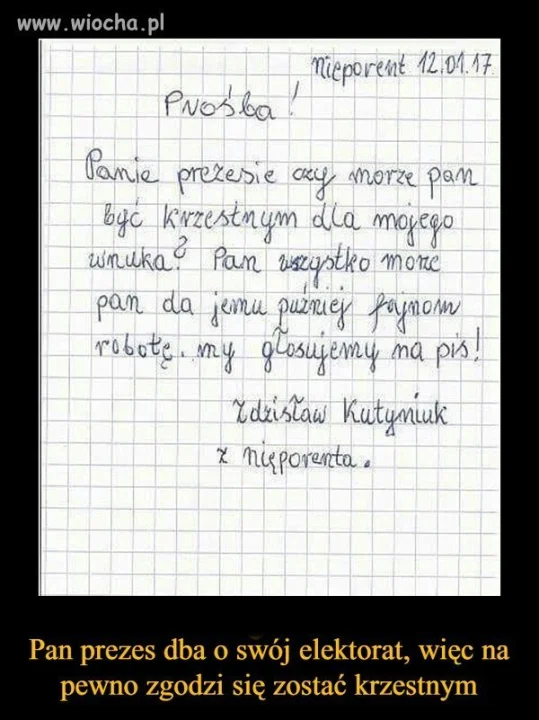 www.wiocha.pl
Nieporent 12.01.17
Prośba!
Panie prezesie czy morze pan
być krzestnym dla mojego
wnuka? Pan wszystko może
pan da jemu puźniej fajnom
robotę. my głosujemy na pis!
Zdzisław Kutyniuk
z nieporenta.
Pan prezes dba o swój elektorat, więc na
pewno zgodzi się zostać krzestnym